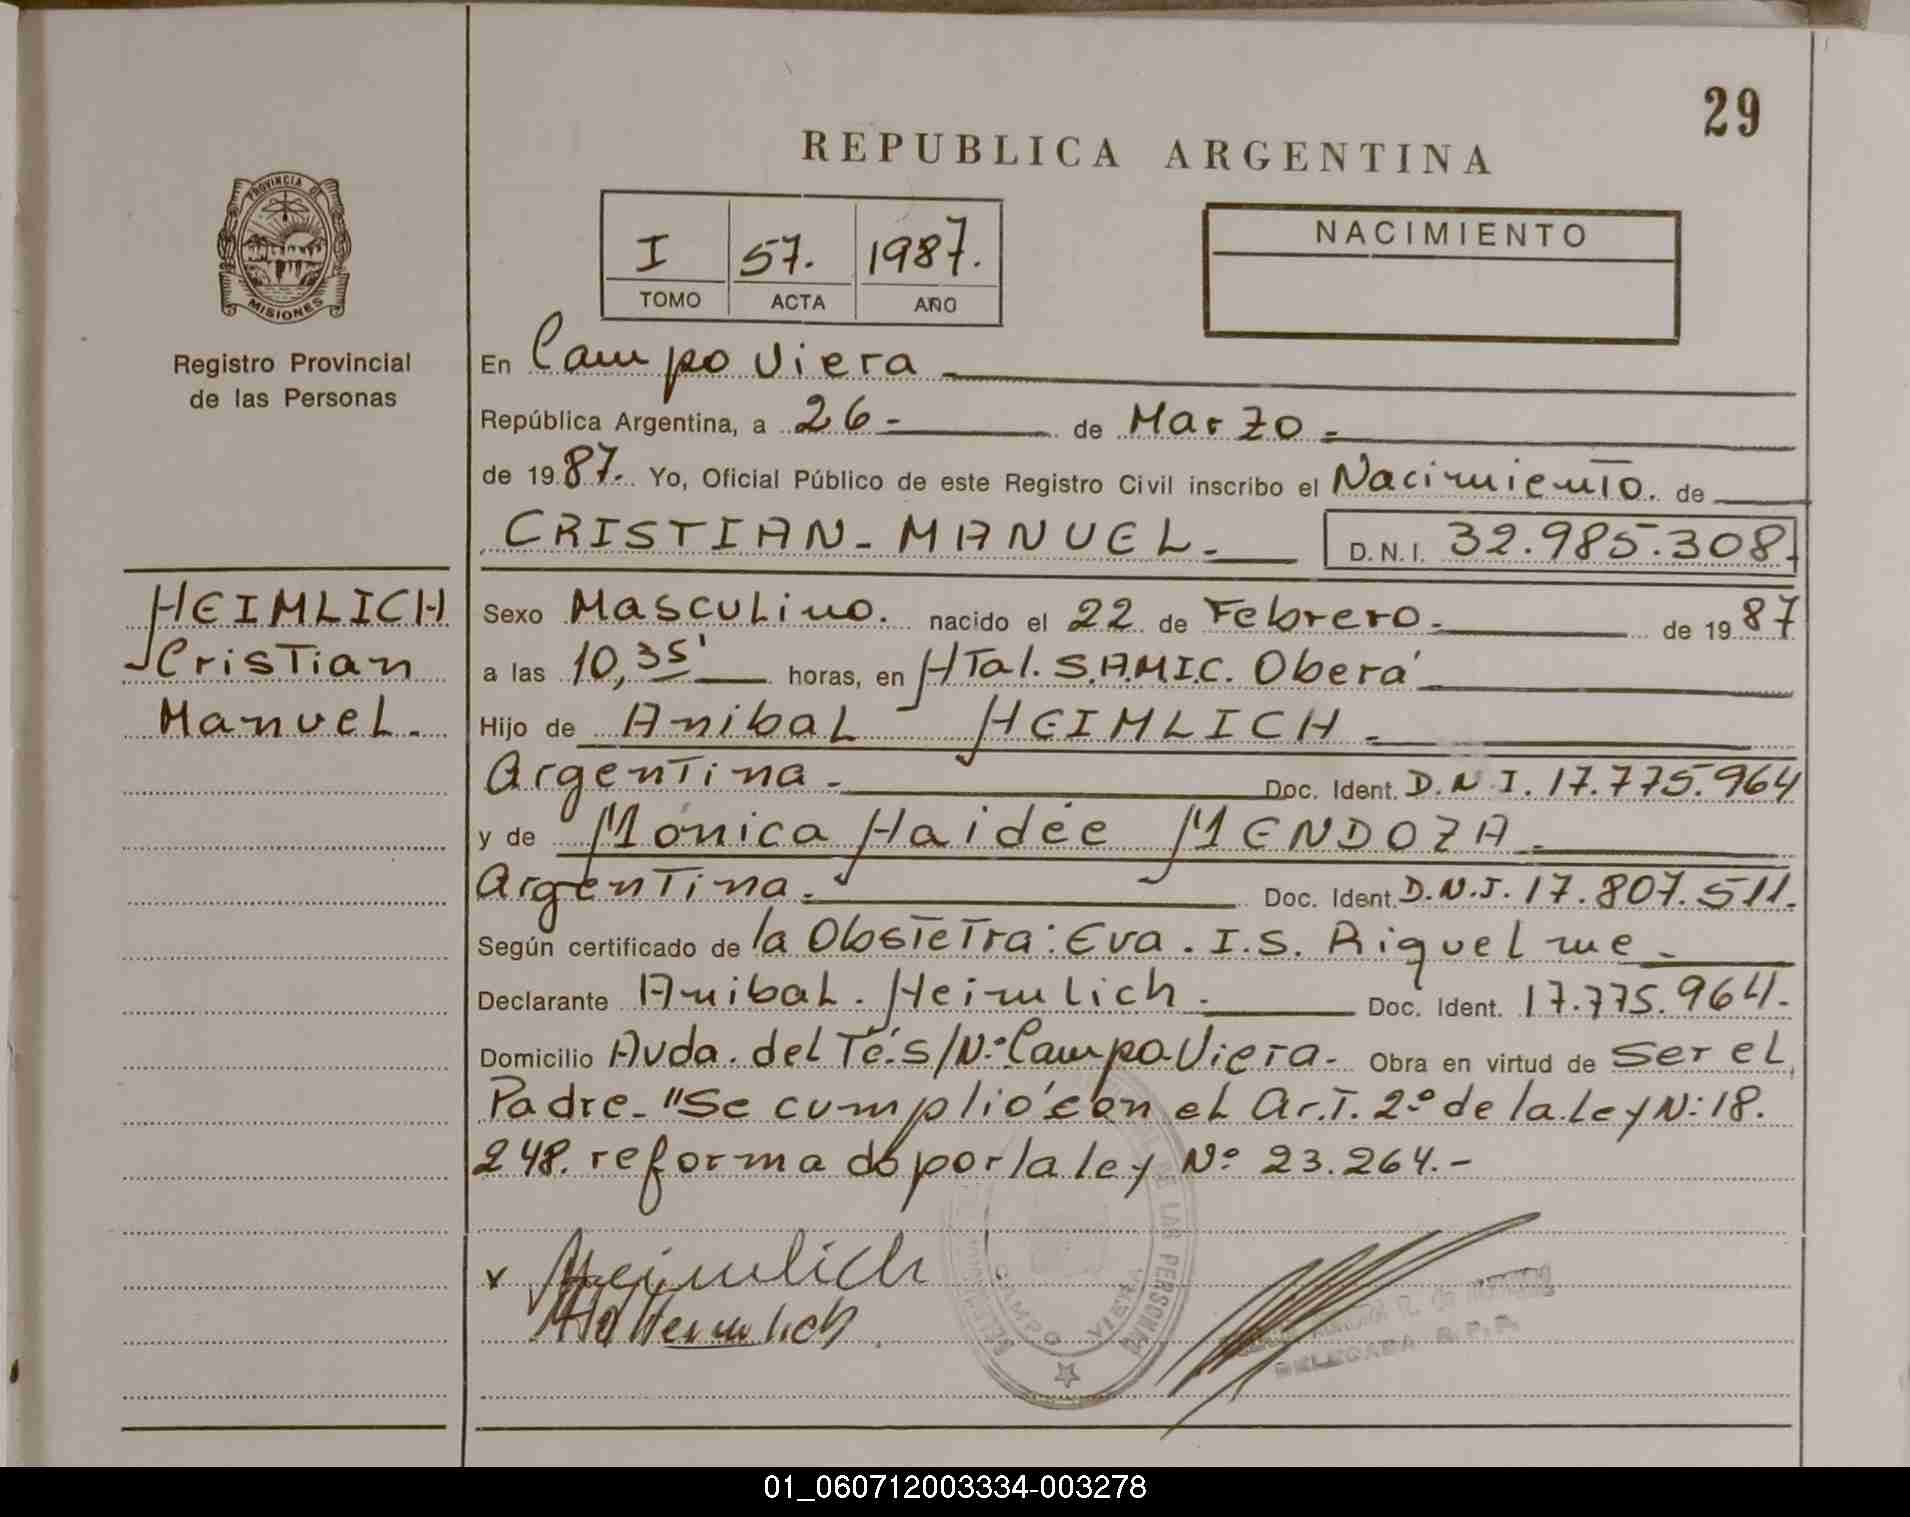 29
REPUBLICA ARGENTINA
PROVINCIA DE
MISIONES
Registro Provincial
de las Personas
I 57. 1987.
TOMO ACTA AÑO
NACIMIENTO
En Campo Viera
República Argentina, a 26- de Marzo-
de 1987. Yo, Oficial Público de este Registro Civil inscribo el Nacimiento. de
CRISTIAN-MANUEL- D.N.I. 32.985.308.
HEIMLICH
Cristian
Manuel.
Sexo Masculino. nacido el 22 de Febrero. de 1987
a las 10,35' horas, en HTal. S.A.M.I.C. Oberá
Hijo de Anibal HEIMLICH-
Argentina- Doc. Ident. D.N.I. 17.775.964
y de Mónica Haidée MENDOZA-
Argentina. Doc. Ident. D.N.I. 17.807.511.
Según certificado de la Obstetra: Eva. I.S. Riquelme-
Declarante Anibal. Heimlich. Doc. Ident. 17.775.964.
Domicilio Avda. del Té. s/Nº Campo Viera- Obra en virtud de Ser el
Padre- "Se cumplió con el Art. 2º de la Ley N: 18.
248. reformado por la ley Nº 23.264.-
x Heimlich
Heimlich
DE LAS PERSONAS
CAMPO VIERA
DELEGADA R.P.P.
01_060712003334-003278